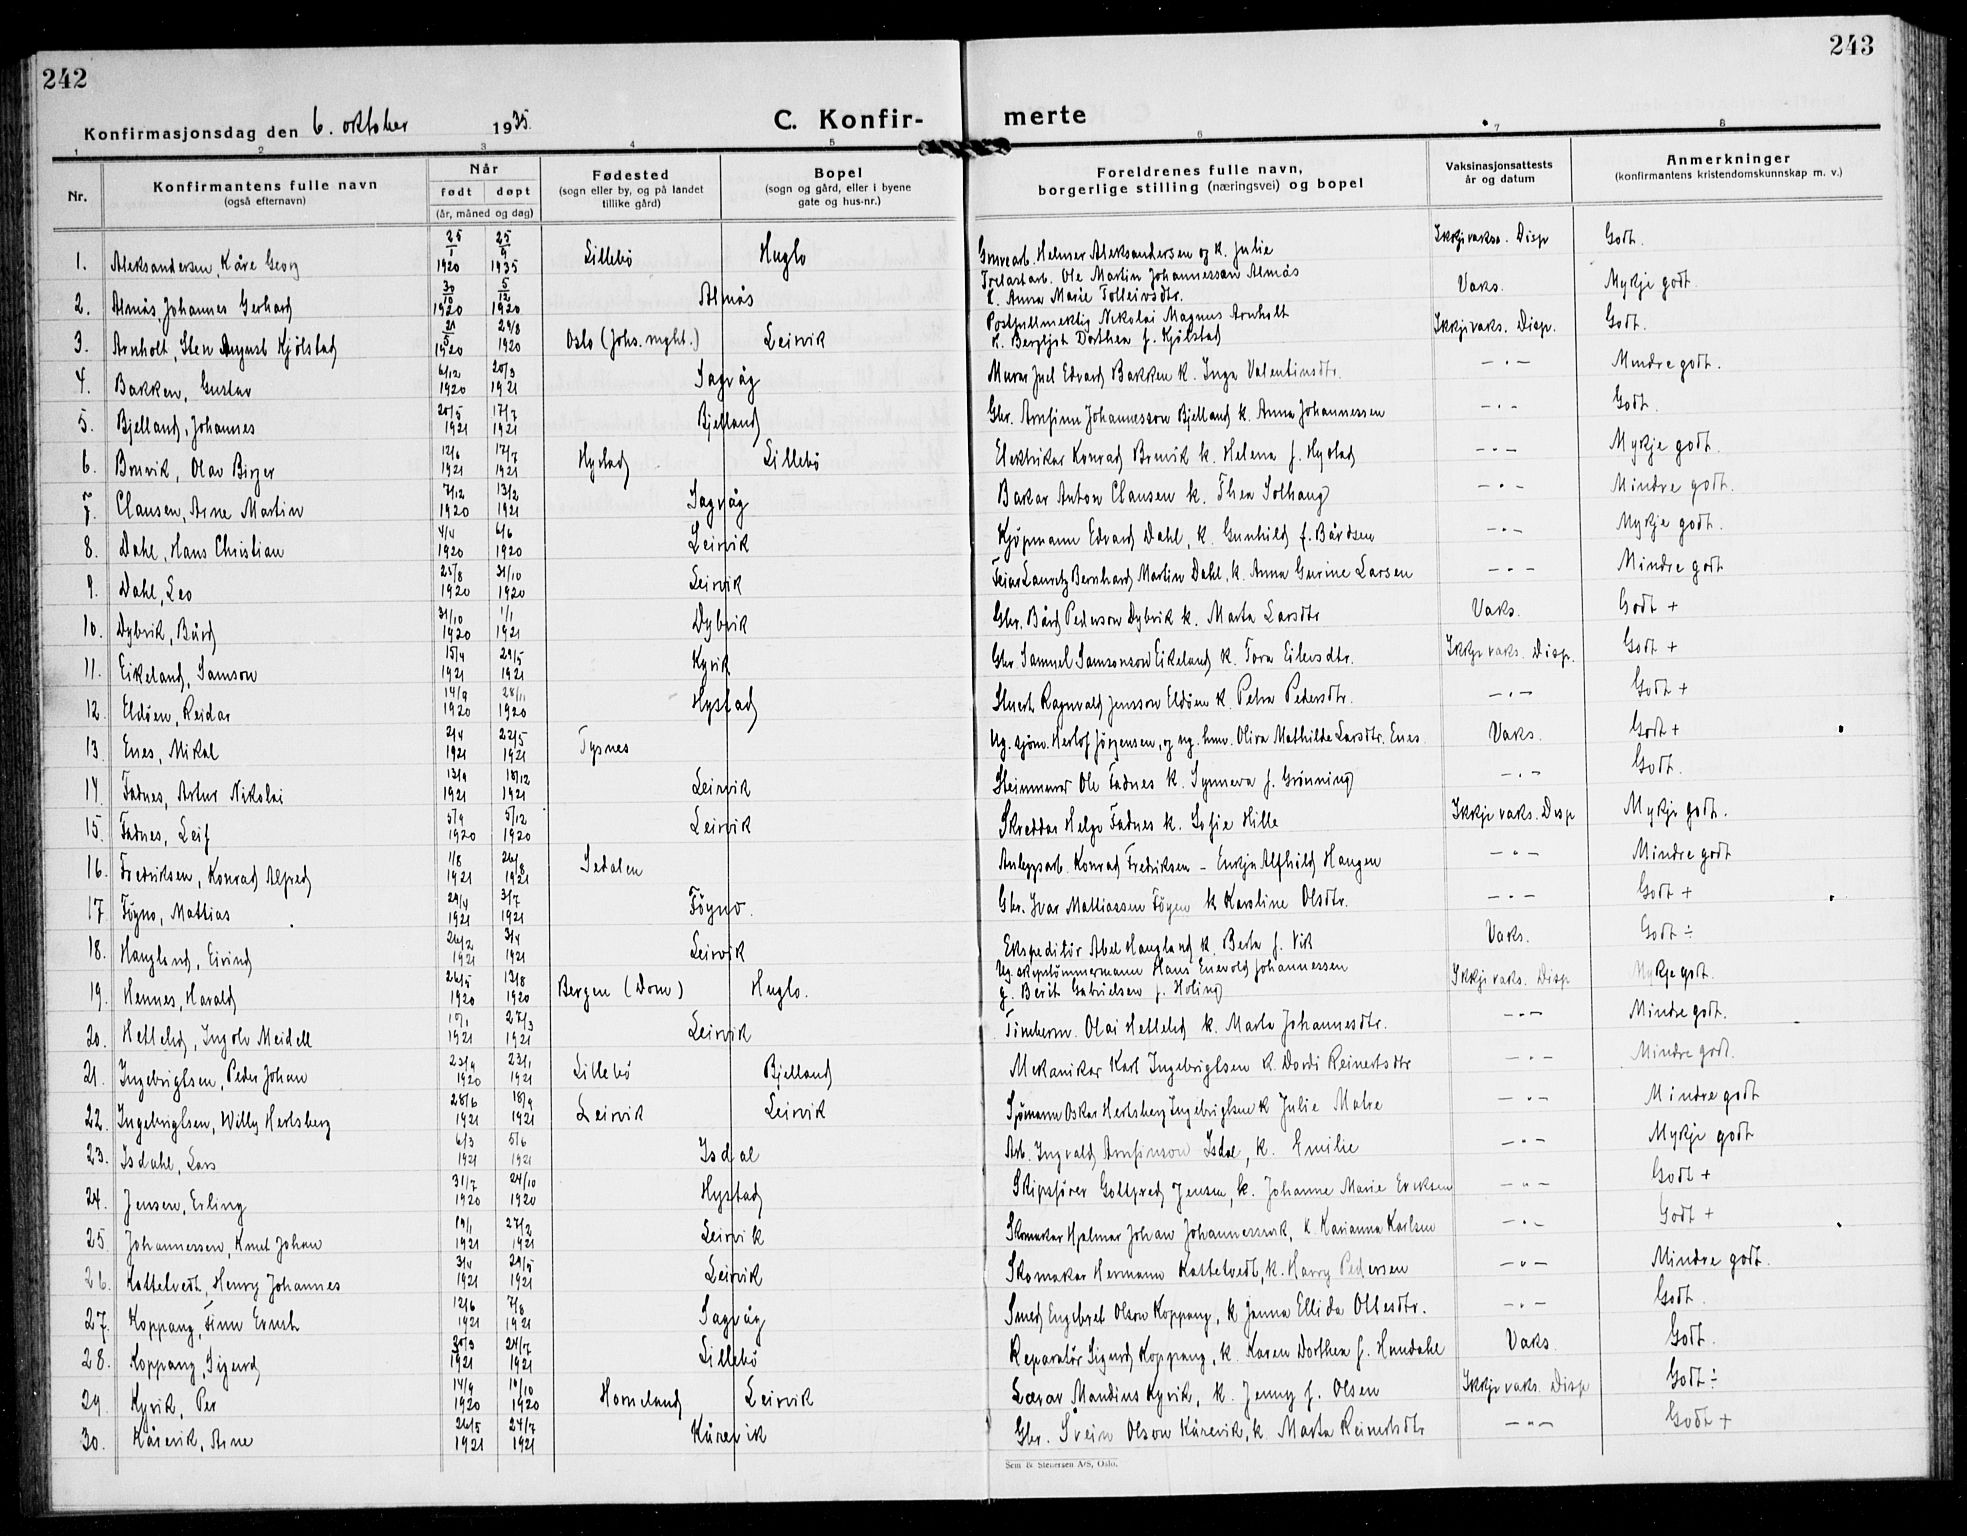 242
243
Konfirmasjonsdag den 6. oktober 1935.
C. Konfir- merte
1 2 3 4 5 6 7 8
Nr.
Konfirmantens fulle navn
(også efternavn)
Når
født døpt
(år, måned og dag)
Fødested
(sogn eller by, og på landet
tillike gård)
Bopel
(sogn og gård, eller i byene
gate og hus-nr.)
Foreldrenes fulle navn,
borgerlige stilling (næringsvei) og bopel
Vaksinasjonsattests
år og datum
Anmerkninger
(konfirmantens kristendomskunnskap m. v.)
1. Aleksandersen, Kåre Georg 25/1 1920 25/9 1935 Lillebö Huglo Gruvearb. Helmer Aleksandersen og k. Julie Ikkji vaks. Disp Godt.
2. Almås, Johannes Gerhard 30/10 1920 5/12 1920 Almås Ole Martin Johannessen Almås
k. Anna Marie Tolleivsdtr. Vaks. Mykje godt.
3. Arnholt, Sten August Kjölstad 21/5 1920 29/8 1920 Oslo (Johs. mght.) Leirvik Postfullmektig Nikolai Magnus Arnholt
k. Bergljot Dorthea f. Kjölstad Ikkji vaks. Disp. Godt.
4. Bakken, Gustav 6/12 1920 20/3 1921 Sagvåg Murar Juel Edvard Bakken k. Inga Valentinsdtr. -"- Mindre godt.
5. Bjelland, Johannes 20/5 1921 17/7 1921 Bjelland Gbr. Arnfinn Johannesson Bjelland k. Anna Johannessen -"- Godt.
6. Bruvik, Olav Birger 12/6 1921 17/7 1921 Hystad Lillebö Elektrikar Konrad Bruvik k. Helena f. Hystad -"- Mykje godt.
7. Clausen, Arne Martin 7/12 1920 13/2 1921 Sagvåg Bakar Anton Clausen k. Thea Solhaug -"- Mindre godt.
8. Dahl, Hans Christian 4/4 1920 6/6 1920 Leirvik Kjöpmann Edvard Dahl, k. Gunhild f. Bårdsen -"- Mykje godt.
9. Dahl, Leo 25/8 1920 31/10 1920 Leirvik Feiar Lauritz Bernhard Martin Dahl, k. Anna Gurine Larsen -"- Mindre godt
10. Dybvik, Bård 31/10 1920 1/1 1921 Dybvik Gbr. Bård Pederson Dybvik k. Marta Larsdtr Vaks. Godt +
11. Eikeland, Samson 15/4 1921 29/5 1921 Kyvik Gbr. Samuel Samsonson Eikeland k. Tora Eilersdtr. Ikkji vaks. Disp. Godt +
12. Eldöen, Reidar 14/9 1920 28/11 1920 Hystad Ragnvald Jensson Eldöen k. Petra Pedersdtr. -"- Godt +
13. Enes, Mikal 2/4 1921 22/5 1921 Tysnes Ug. sjöm. Herlof Jörgensen, og ug. hmv. Oliva Mathilde Larsdtr. Enes Vaks. Godt +
14. Fadnes, Artur Nikolai 13/9 1921 18/12 1921 Leirvik Steinmurar Ole Fadnes k. Synneva f. Grönning -"- Godt.
15. Fadnes, Leif 5/9 1920 5/12 1920 Leirvik Skreddar Helge Fadnes k. Sofie Hille Ikkji vaks. Disp Mykje godt.
16. Fredriksen, Konrad Alfred 1/8 1921 26/8 1921 Sedalen Anleggsarb. Konrad Fredriksen - Enkja Alfhild Haugen -"- Mindre godt
17. Föyno, Mattias 29/4 1921 3/7 1921 Föyno. Gbr. Ivar Mattiassen Föyen k Karoline Olsdtr. -"- Godt +
18. Haugland, Eivind 26/2 1921 3/4 1921 Leirvik Ekspeditör Abel Haugland k. Berta f. Vik Vaks. Godt ÷
19. Hennes, Harald 26/5 1920 13/8 1920 Bergen (Dom) Huglo. Ug. skipstömmermann Hans Enevold Johannessen
g. Berit Gabrielsen f. Höling Ikkji vaks. Disp Mykje godt.
20. Hetleld, Ingolv Meidell 10/1 1921 27/3 1921 Leirvik Olai Hetleld k. Marta Johannesdtr. -"- Mindre godt.
21. Ingebrigtsen, Peder Johan 23/9 1920 23/1 1921 Lillebö Bjelland Mekanikar Karl Ingebrigtsen k. Dordi Reinertsdtr -"- Mindre godt.
22. Ingebrigtsen, Willy Hertsberg 28/6 1921 18/9 1921 Leirvik Leirvik Sjömann Oskar Hertsberg Ingebrigtsen k Julie Matre -"- Mindre godt
23. Isdahl, Lars 6/3 1921 5/6 1921 Isdal Arb. Ingvald Arnfinson Isdal, k. Emilie -"- Mykje godt
24. Jensen, Erling 31/7 1920 24/10 1920 Hystad Skipsförer Gottfred Jensen, k. Johanne Marie Eriksen -"- Godt +
25. Johannessen, Knut Johan 19/1 1921 27/2 1921 Leirvik Skomakar Hjalmar Johan Johannessen, k Karianna Karlsen -"- Godt +
26. Kattetvedt, Henry Johannes 3/4 1921 29/5 1921 Leirvik Skomakar Hermann Kattetvedt, k. Harry Pedersen -"- Mindre godt.
27. Koppang, Finn Ernst 12/6 1921 7/8 1921 Sagvåg Smed Engebret Olson Koppang, k Janna Ellida Ottesdtr. -"- Godt.
28. Koppang, Sigurd 20/3 1921 24/7 1921 Lillebö Reparatör Sigurd Koppang, k. Karen Dorthea f. Hundahl Vaks. Godt.
29. Kyvik, Per 14/9 1920 10/10 1920 Horneland Leirvik Lærar Mandius Kyvik, k. Jenny f. Olsen Ikkji vaks. Disp Godt ÷
30. Kårevik, Arne 26/5 1921 24/7 1921 Kårevik Gbr. Svein Olson Kårevik, k. Marta Reinertsdtr -"- Godt +
Sem & Stenersen A/S, Oslo.